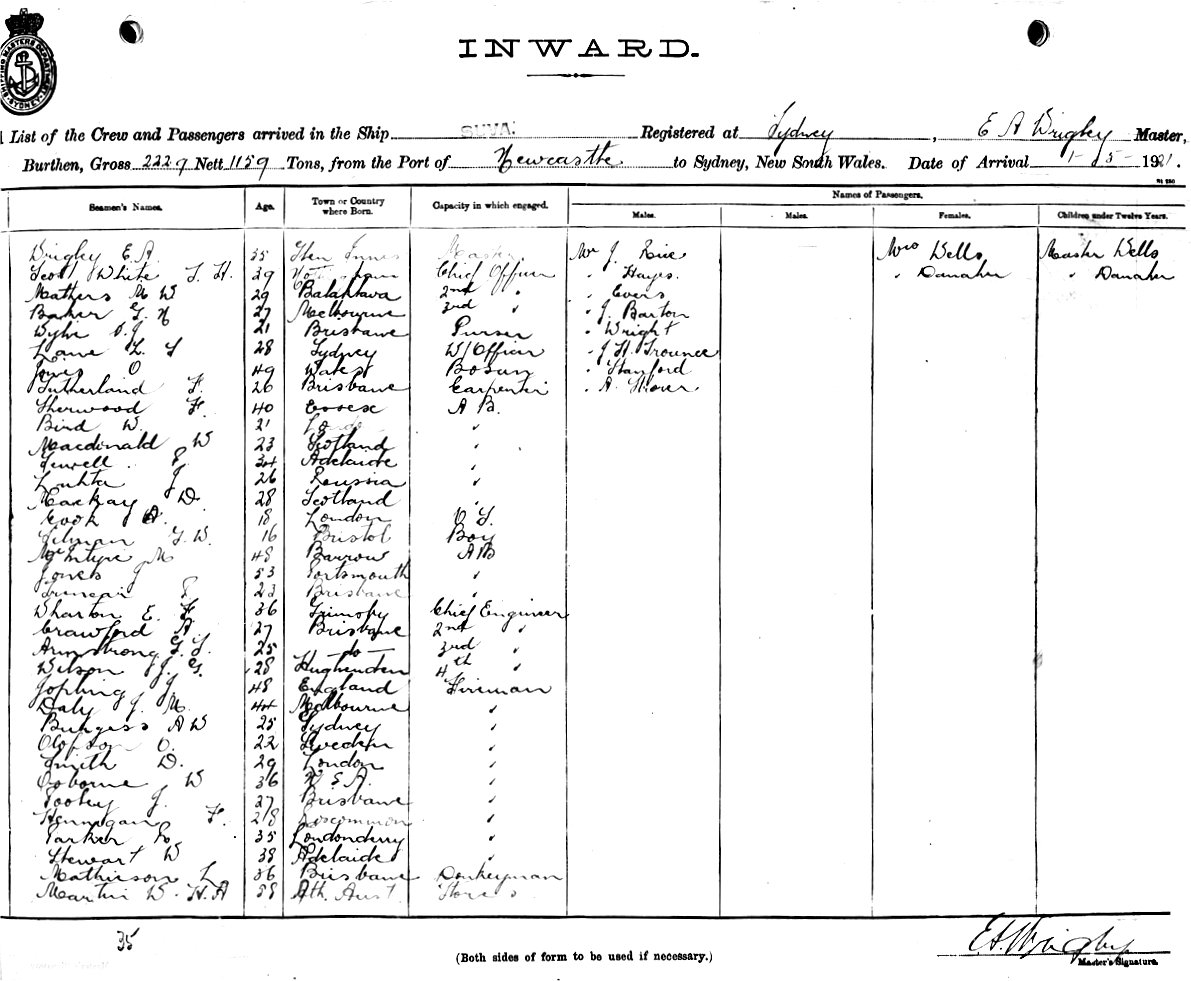 SHIPPING MASTERS DEPARTMENT SYDNEY
INWARD.
List of the Crew and Passengers arrived in the Ship SUVA. Registered at Sydney, E A Wrigley Master,
Burthen, Gross 2229 Nett 1159 Tons, from the Port of Newcastle to Sydney, New South Wales. Date of Arrival 1-5-1921.
Names of Passengers.
Seamen's Names. Age. Town or Country where Born. Capacity in which engaged. Males. Males. Females. Children under Twelve Years.
Wrigley E.A. 35 Glen Innes Master Mr J. Rice Mrs Wells Master Wells
Scott White 39 Chief Officer " Hayes " Danaher " Danaher
Mathers M W 29 Balaklava 2nd " " Evers
Baker G. N 27 Melbourne 3rd " " J. Barton
Wylie 21 Brisbane Purser " Wright
Lane L. 28 Sydney W/Officer " J H. Trounce
Jones O 49 Wales Bosun "
Sutherland F. 26 Brisbane Carpenter " A.
Sherwood F. 40 Essex A B.
Bird W. 21 "
Macdonald W 23 Scotland "
Sewell 34 Adelaide "
J 26 Russia "
Mackay D. 28 Scotland "
Cook A. 18 London O S.
G. W. 16 Bristol Boy
McIntyre M 48 Barrow AB
Jones J 53 Portsmouth "
23 Brisbane "
Wharton E. F. 36 Grimsby Chief Engineer
Crawford A. 27 Brisbane 2nd "
Armstrong 25 -do- 3rd "
Wilson J. G. 28 Hughenden 4th "
Jopling J 48 England Fireman
Daly J. M. 44 Melbourne "
Burgess A W 25 Sydney "
Olofson O. 22 Sweden "
Smith D. 29 London "
Osborne W 36 "
Tooley J. 27 Brisbane "
Hennigan F. 28 Roscommon "
Parker 35 Londonderry "
Stewart W 38 Adelaide "
Mathieson L 36 Brisbane Donkeyman
Martin W. H. A 58 Sth. Aust Stores
35
(Both sides of form to be used if necessary.)
E A Wrigley
Master's Signature.